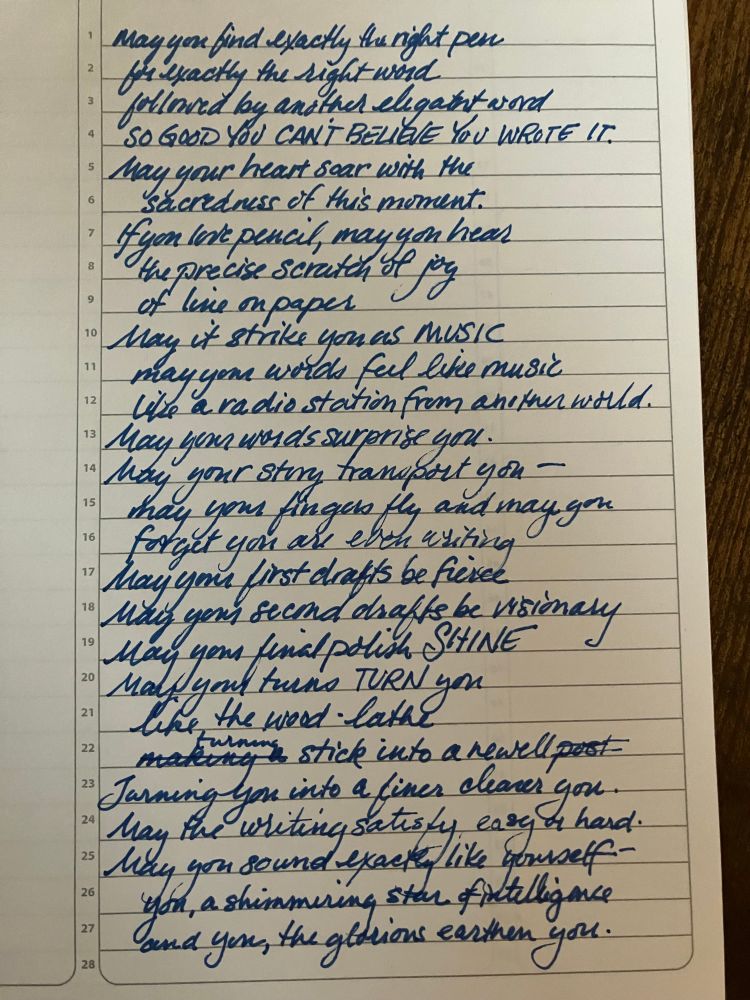 1 May you find exactly the right pen
2 for exactly the right word
3 followed by another elegant word
4 SO GOOD YOU CAN'T BELIEVE YOU WROTE IT.
5 May your heart soar with the
6 sacredness of this moment.
7 If you love pencil, may you hear
8 the precise scratch of joy
9 of line on paper
10 May it strike you as MUSIC
11 may your words feel like music
12 like a radio station from another world.
13 May your words surprise you.
14 May your story transport you—
15 may your fingers fly and may you
16 forget you are even writing
17 May your first drafts be fierce
18 May your second drafts be visionary
19 May your final polish SHINE
20 May your turns TURN you
21 like the wood-lathe
turning
22 making a stick into a newell post
23 Turning you into a finer clearer you.
24 May the writing satisfy, easy or hard.
25 May you sound exactly like yourself—
26 you, a shimmering star of intelligence
27 and you, the glorious earthen you.
28